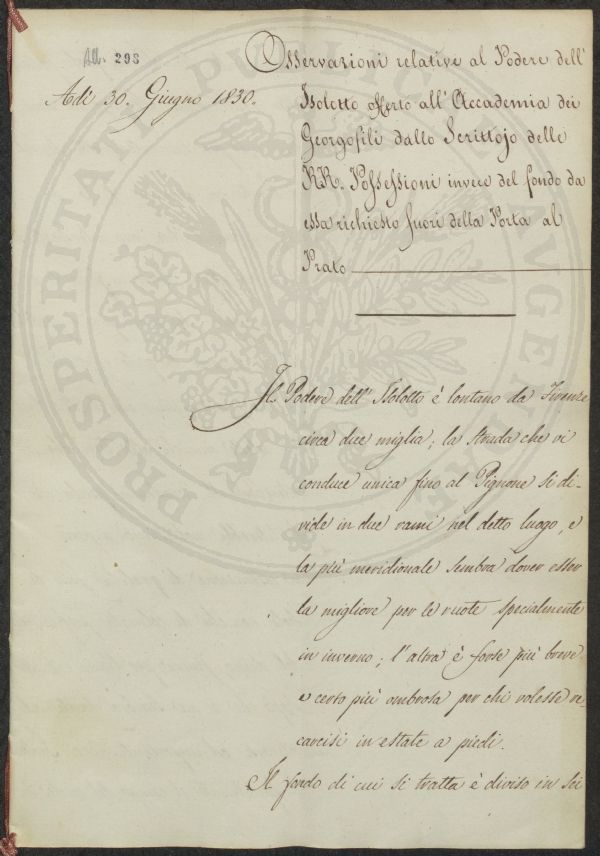 All. 298
Adì 30. Giugno 1830.
Osservazioni relative al Podere dell'
Isolotto offerto all'Accademia dei
Georgofili dallo Scrittojo delle
RR. Possessioni invece del fondo da
essa richiesto fuori della Porta al
Prato
Il Podere dell'Isolotto è lontano da Firenze
circa due miglia; la strada che vi
conduce unica fino al Pignone si di-
vide in due rami nel detto luogo, e
la più meridionale sembra dover esser
la migliore per le ruote specialmente
in inverno; l'altra è forse più breve
e certo più ombrosa per chi volesse re-
carcisi in estate a piedi.
Il fondo di cui si tratta è diviso in sei
PROSPERITATI PUBLICAE AUGENDAE